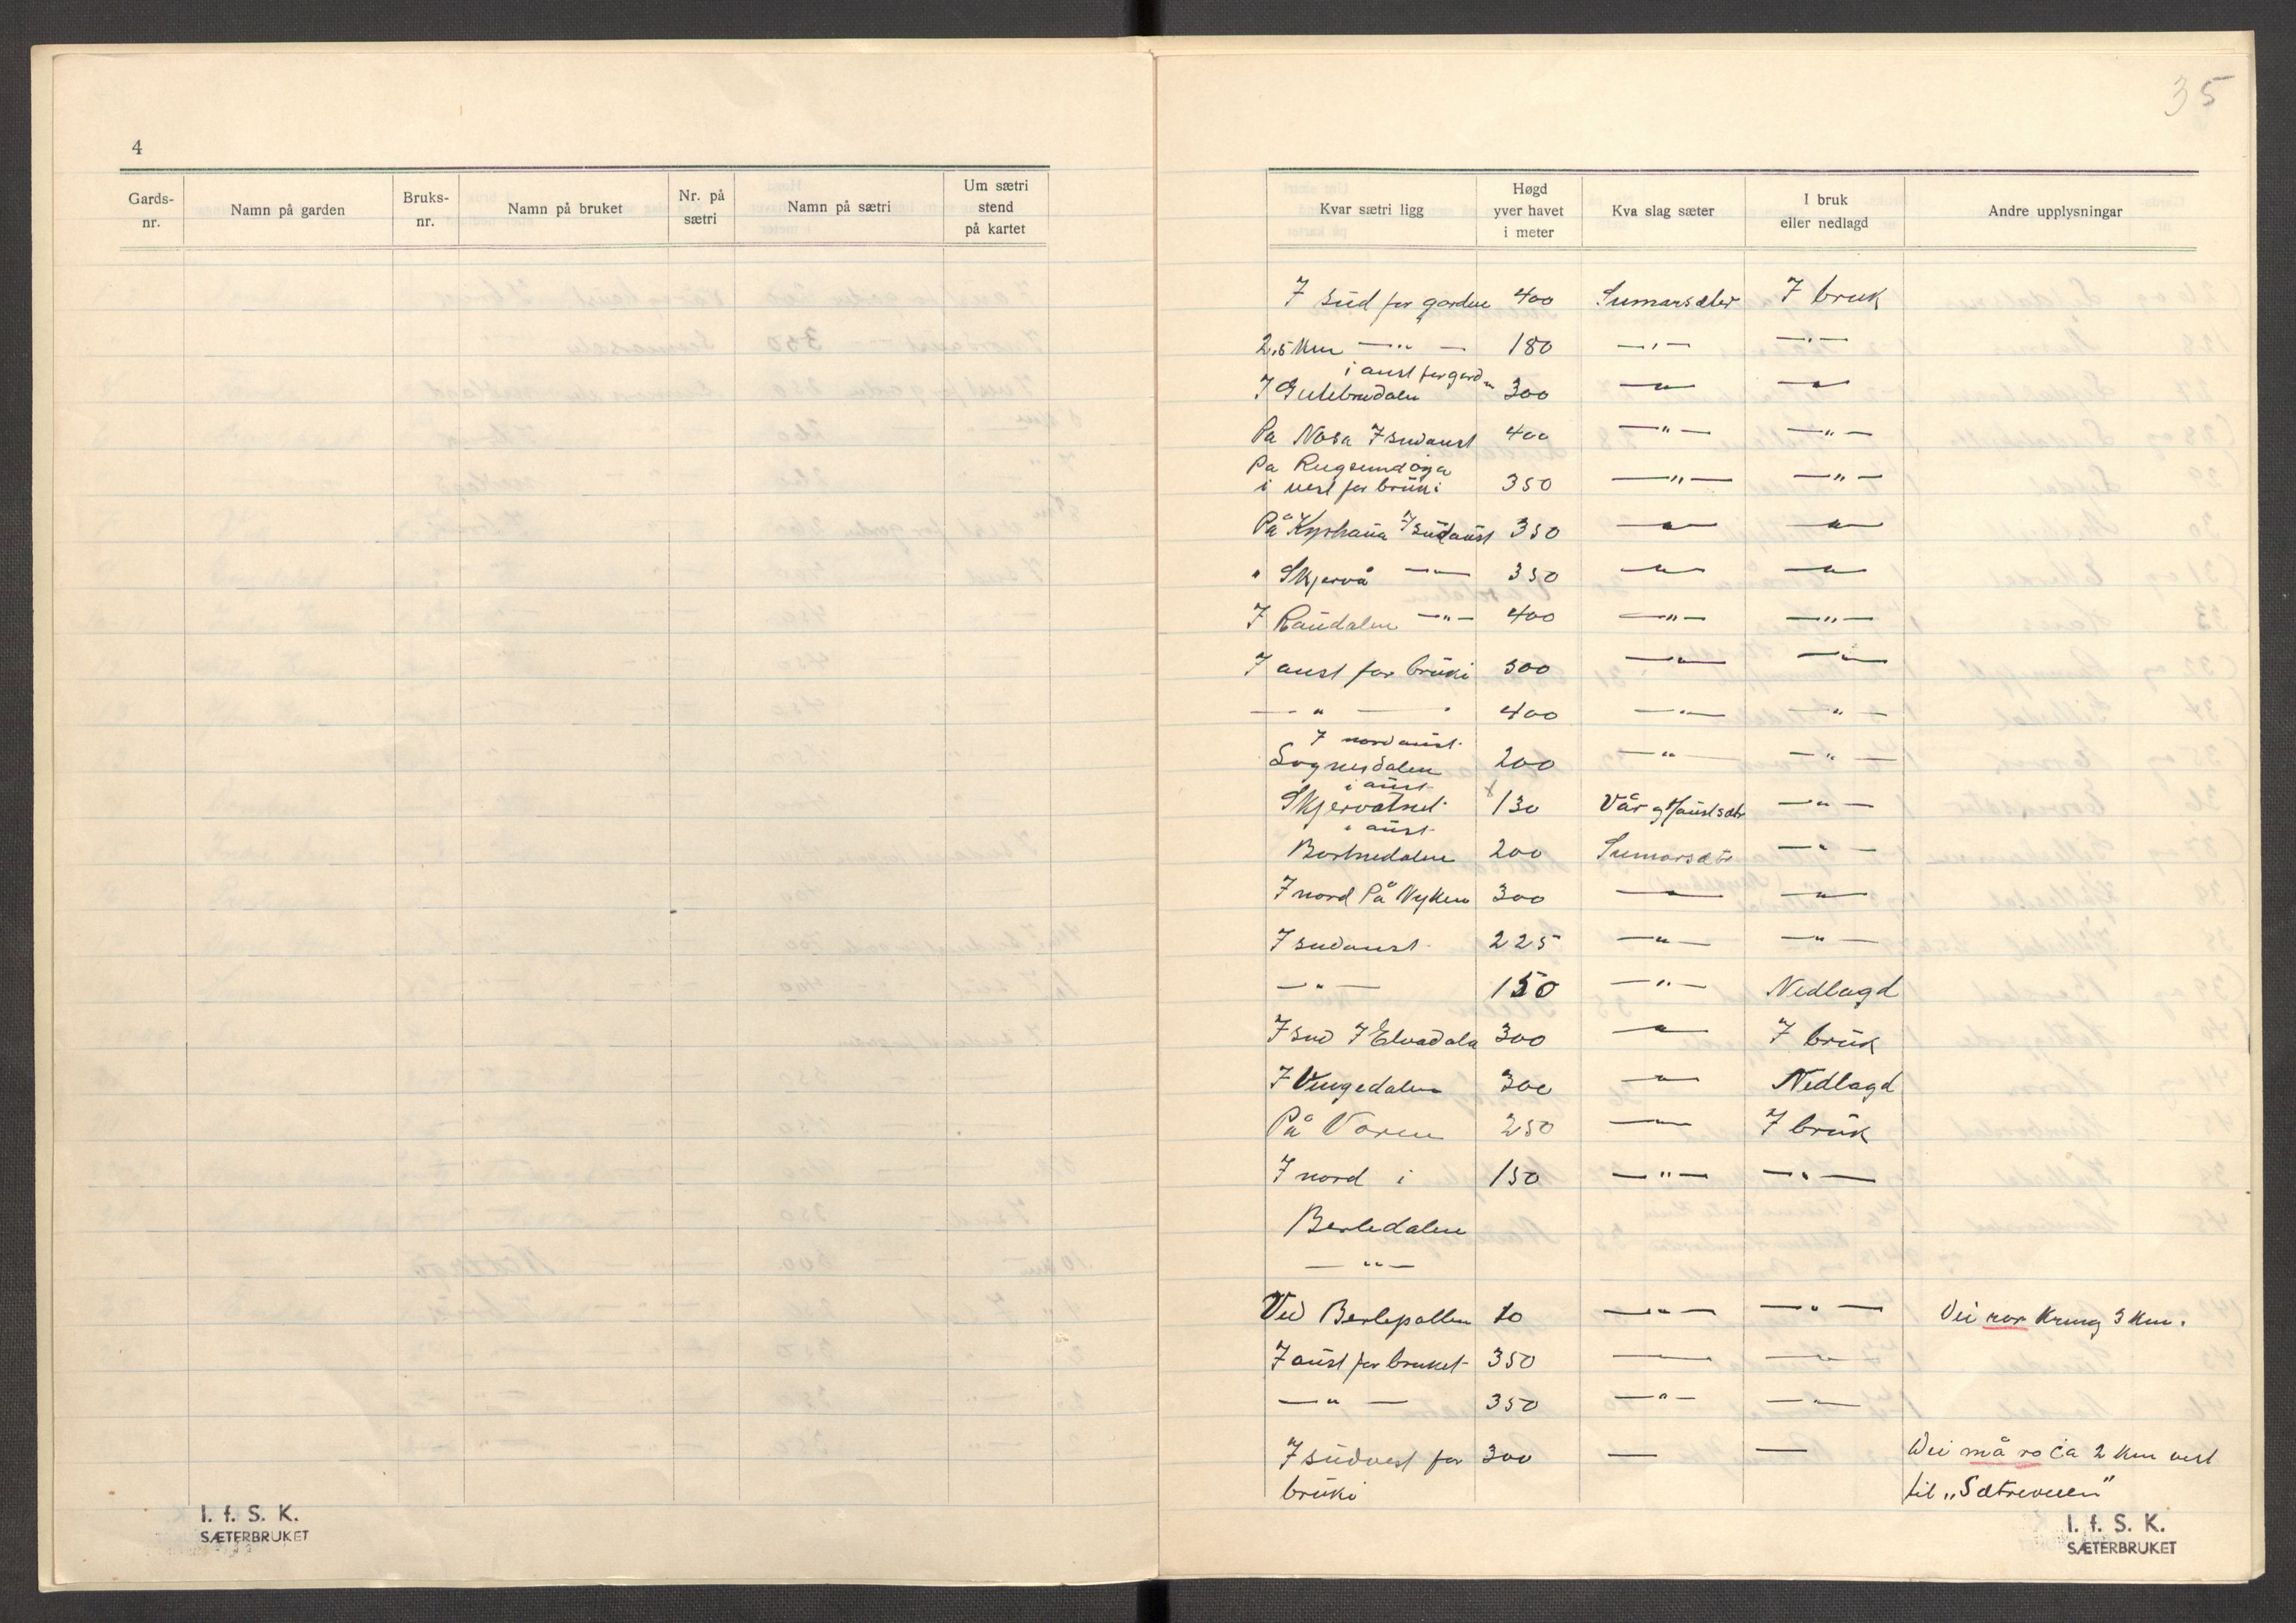 4
Gards-nr. Namn på garden Bruks-nr. Namn på bruket Nr. på sætri Namn på sætri Um sætri stend på kartet
I. f. S. K.
SÆTERBRUKET
35
Kvar sætri ligg Høgd yver havet i meter Kva slag sæter I bruk eller nedlagd Andre upplysningar
I sud for garden 400 Sumarsæter I bruk
2,5 km —"— 180 —"— —"—
i aust for garden
I Gulebrudalen 300 —"— —"—
På Nosa I sudaust 400 —"— —"—
På Rugsundøya
i vest for bruki 350 —"— —"—
På Kyrhaua I sudaust 350 —"— —"—
" Skjervå —"— 350 —"— —"—
I Raudalen —"— 400 —"— —"—
I aust for bruki 300 —"— —"—
—"— 400 —"— —"—
I nordaust
Sognesdalen 200 —"— —"—
i aust
Skjervatnet 130 Vår og Haustsætr —"—
i aust
Bortnedalen 200 Sumarsætr —"—
I nord På Nyken 300 —"— —"—
I sudaust 225 —"— —"—
—"— 150 —"— Nedlagd
I sud I Elvadala 300 —"— I bruk
I Vingedalen 300 —"— Nedlagd
På Varen 250 —"— I bruk
I nord i 150 —"— —"—
Berledalen
—"—
Ved Berlepollen 10 —"— —"— Dei ror kring 3 km.
I aust for bruket 350 —"— —"—
—"— 350 —"— —"—
I sudvest for 300 — — Dei må ro ca 2 km vest
bruki til „Sætreveien"
I. f. S. K.
SÆTERBRUKET